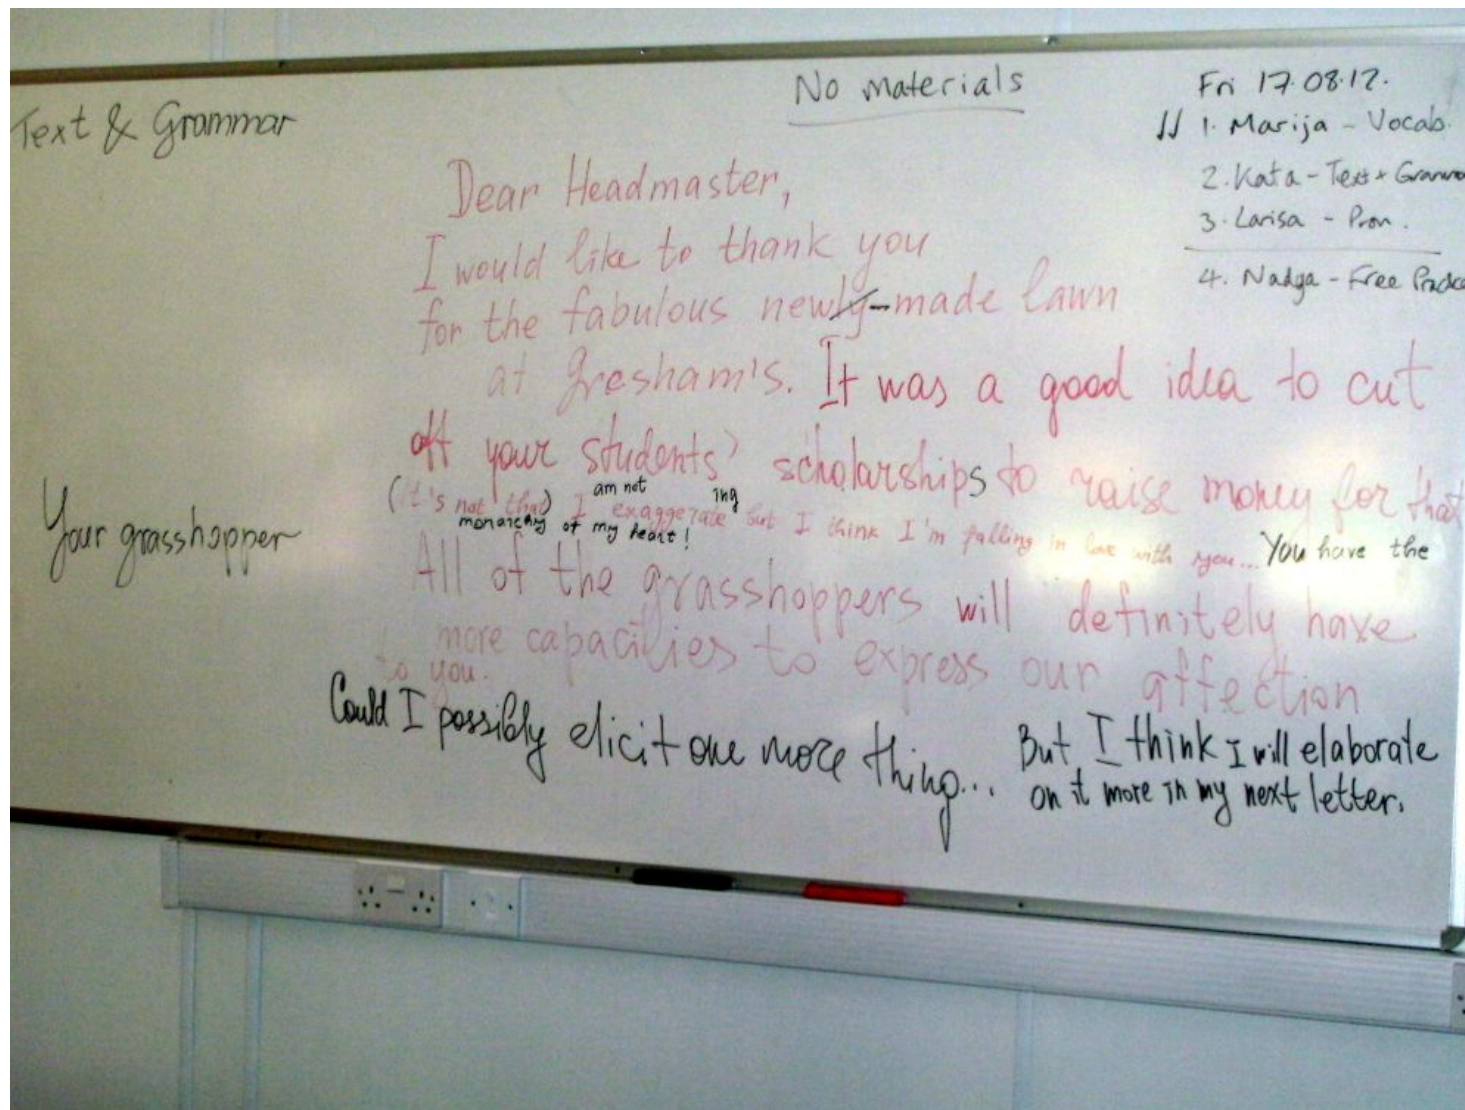 Text & Grammar
No materials
Fri 17.08.12.
1. Marija - Vocab.
2. Kata - Text + Gramma
3. Larisa - Pron.
4. Nadya - Free Practice
Dear Headmaster,
I would like to thank you
for the fabulous newly-made lawn
at Gresham's. It was a good idea to cut
off your students' scholarships to raise money for that
am not ing
(It's not that) I exaggerate but I think I'm falling in love with you... You have the
monarchy of my heart!
All of the grasshoppers will definitely have
more capacities to express our affection
to you.
Your grasshopper
Could I possibly elicit one more thing... But I think I will elaborate
on it more in my next letter.